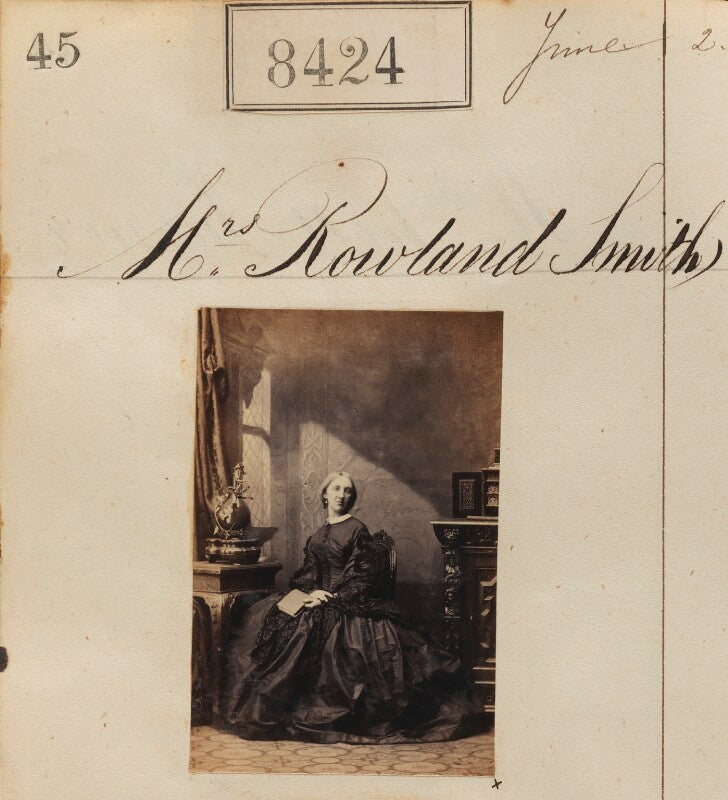 45
8424
June 2.
Mrs. Rowland Smith
x